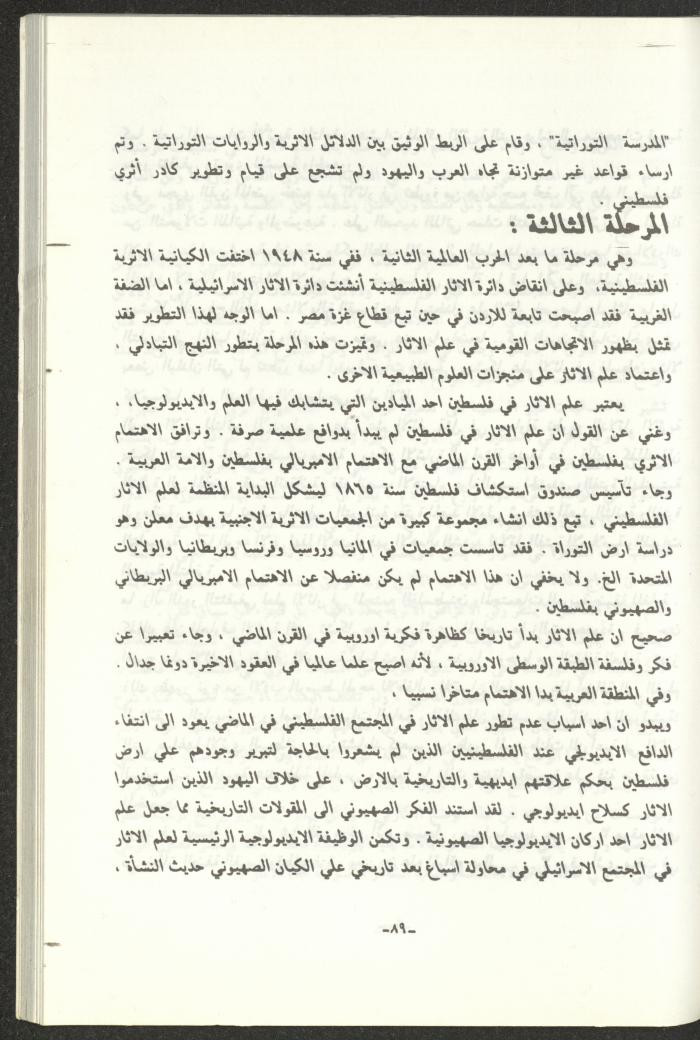 "المدرسة التوراتية" ، وقام على الربط الوثيق بين الدلائل الاثرية والروايات التوراتية . وتم
ارساء قواعد غير متوازنة تجاه العرب واليهود ولم تشجع على قيام وتطوير كادر أثري
فلسطيني .
المرحلة الثالثة :
وهي مرحلة ما بعد الحرب العالمية الثانية ، ففي سنة ١٩٤٨ اختفت الكيانية الاثرية
الفلسطينية، وعلى انقاض دائرة الاثار الفلسطينية أنشئت دائرة الاثار الاسرائيلية ، اما الضفة
الغربية فقد اصبحت تابعة للاردن في حين تبع قطاع غزة مصر . اما الوجه لهذا التطوير فقد
تمثل بظهور الاتجاهات القومية في علم الاثار . وتميزت هذه المرحلة بتطور النهج التبادلي ،
واعتماد علم الاثار على منجزات العلوم الطبيعية الاخرى .
يعتبر علم الاثار في فلسطين احد الميادين التي يتشابك فيها العلم والايديولوجيا، ،
وغني عن القول ان علم الاثار في فلسطين لم يبدأ بدوافع علمية صرفة . وترافق الاهتمام
الاثري بفلسطين في أواخر القرن الماضي مع الاهتمام الامبريالي بفلسطين والامة العربية .
وجاء تأسيس صندوق استكشاف فلسطين سنة ١٨٦٥ ليشكل البداية المنظمة لعلم الاثار
الفلسطيني ، تبع ذلك انشاء مجموعة كبيرة من الجمعيات الاثرية الاجنبية بهدف معلن وهو
دراسة ارض التوراة . فقد تاسست جمعيات في المانيا وروسيا وفرنسا وبريطانيا والولايات
المتحدة الخ. ولا يخفي ان هذا الاهتمام لم يكن منفصلا عن الاهتمام الامبريالي البريطاني
والصهيوني بفلسطين .
صحيح ان علم الاثار بدأ تاريخا كظاهرة فكرية اوروبية في القرن الماضي ، وجاء تعبيرا عن
فكر وفلسفة الطبقة الوسطى الاوروبية ، لأنه اصبح علما عالميا في العقود الاخيرة دونما جدال .
وفي المنطقة العربية بدا الاهتمام متاخرا نسبيا ،
ويبدو ان احد اسباب عدم تطور علم الاثار في المجتمع الفلسطيني في الماضي يعود الى انتفاء
الدافع الايديولجي عند الفلسطينيين الذين لم يشعروا بالحاجة لتبرير وجودهم علي ارض
فلسطين بحكم علاقتهم ابديهية والتاريخية بالارض ، على خلاف اليهود الذين استخدموا
الاثار كسلاح ايديولوجي . لقد استند الفكر الصهيوني الى المقولات التاريخية مما جعل علم
الاثار احد اركان الايديولوجيا الصهيونية . وتكمن الوظيفة الايديولوجية الرئيسية لعلم الاثار
في المجتمع الاسرائيلي في محاولة اسباغ بعد تاريخي علي الكيان الصهيوني حديث النشأة ،
-٨٩-